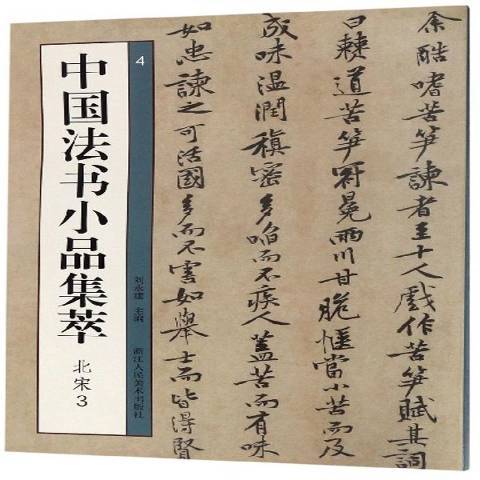 余酷嗜苦笋諫者至十人戲作苦笋賦其詞
曰棘道苦笋冠冕兩川甘脆愜當小苦而及
成味溫潤稹密多啗而不疾人蓋苦而有味
如忠諫之可活國多而不害如舉士而皆得賢
4
刘永建 主编
浙江人民美术出版社
中国法书小品集萃
北宋3